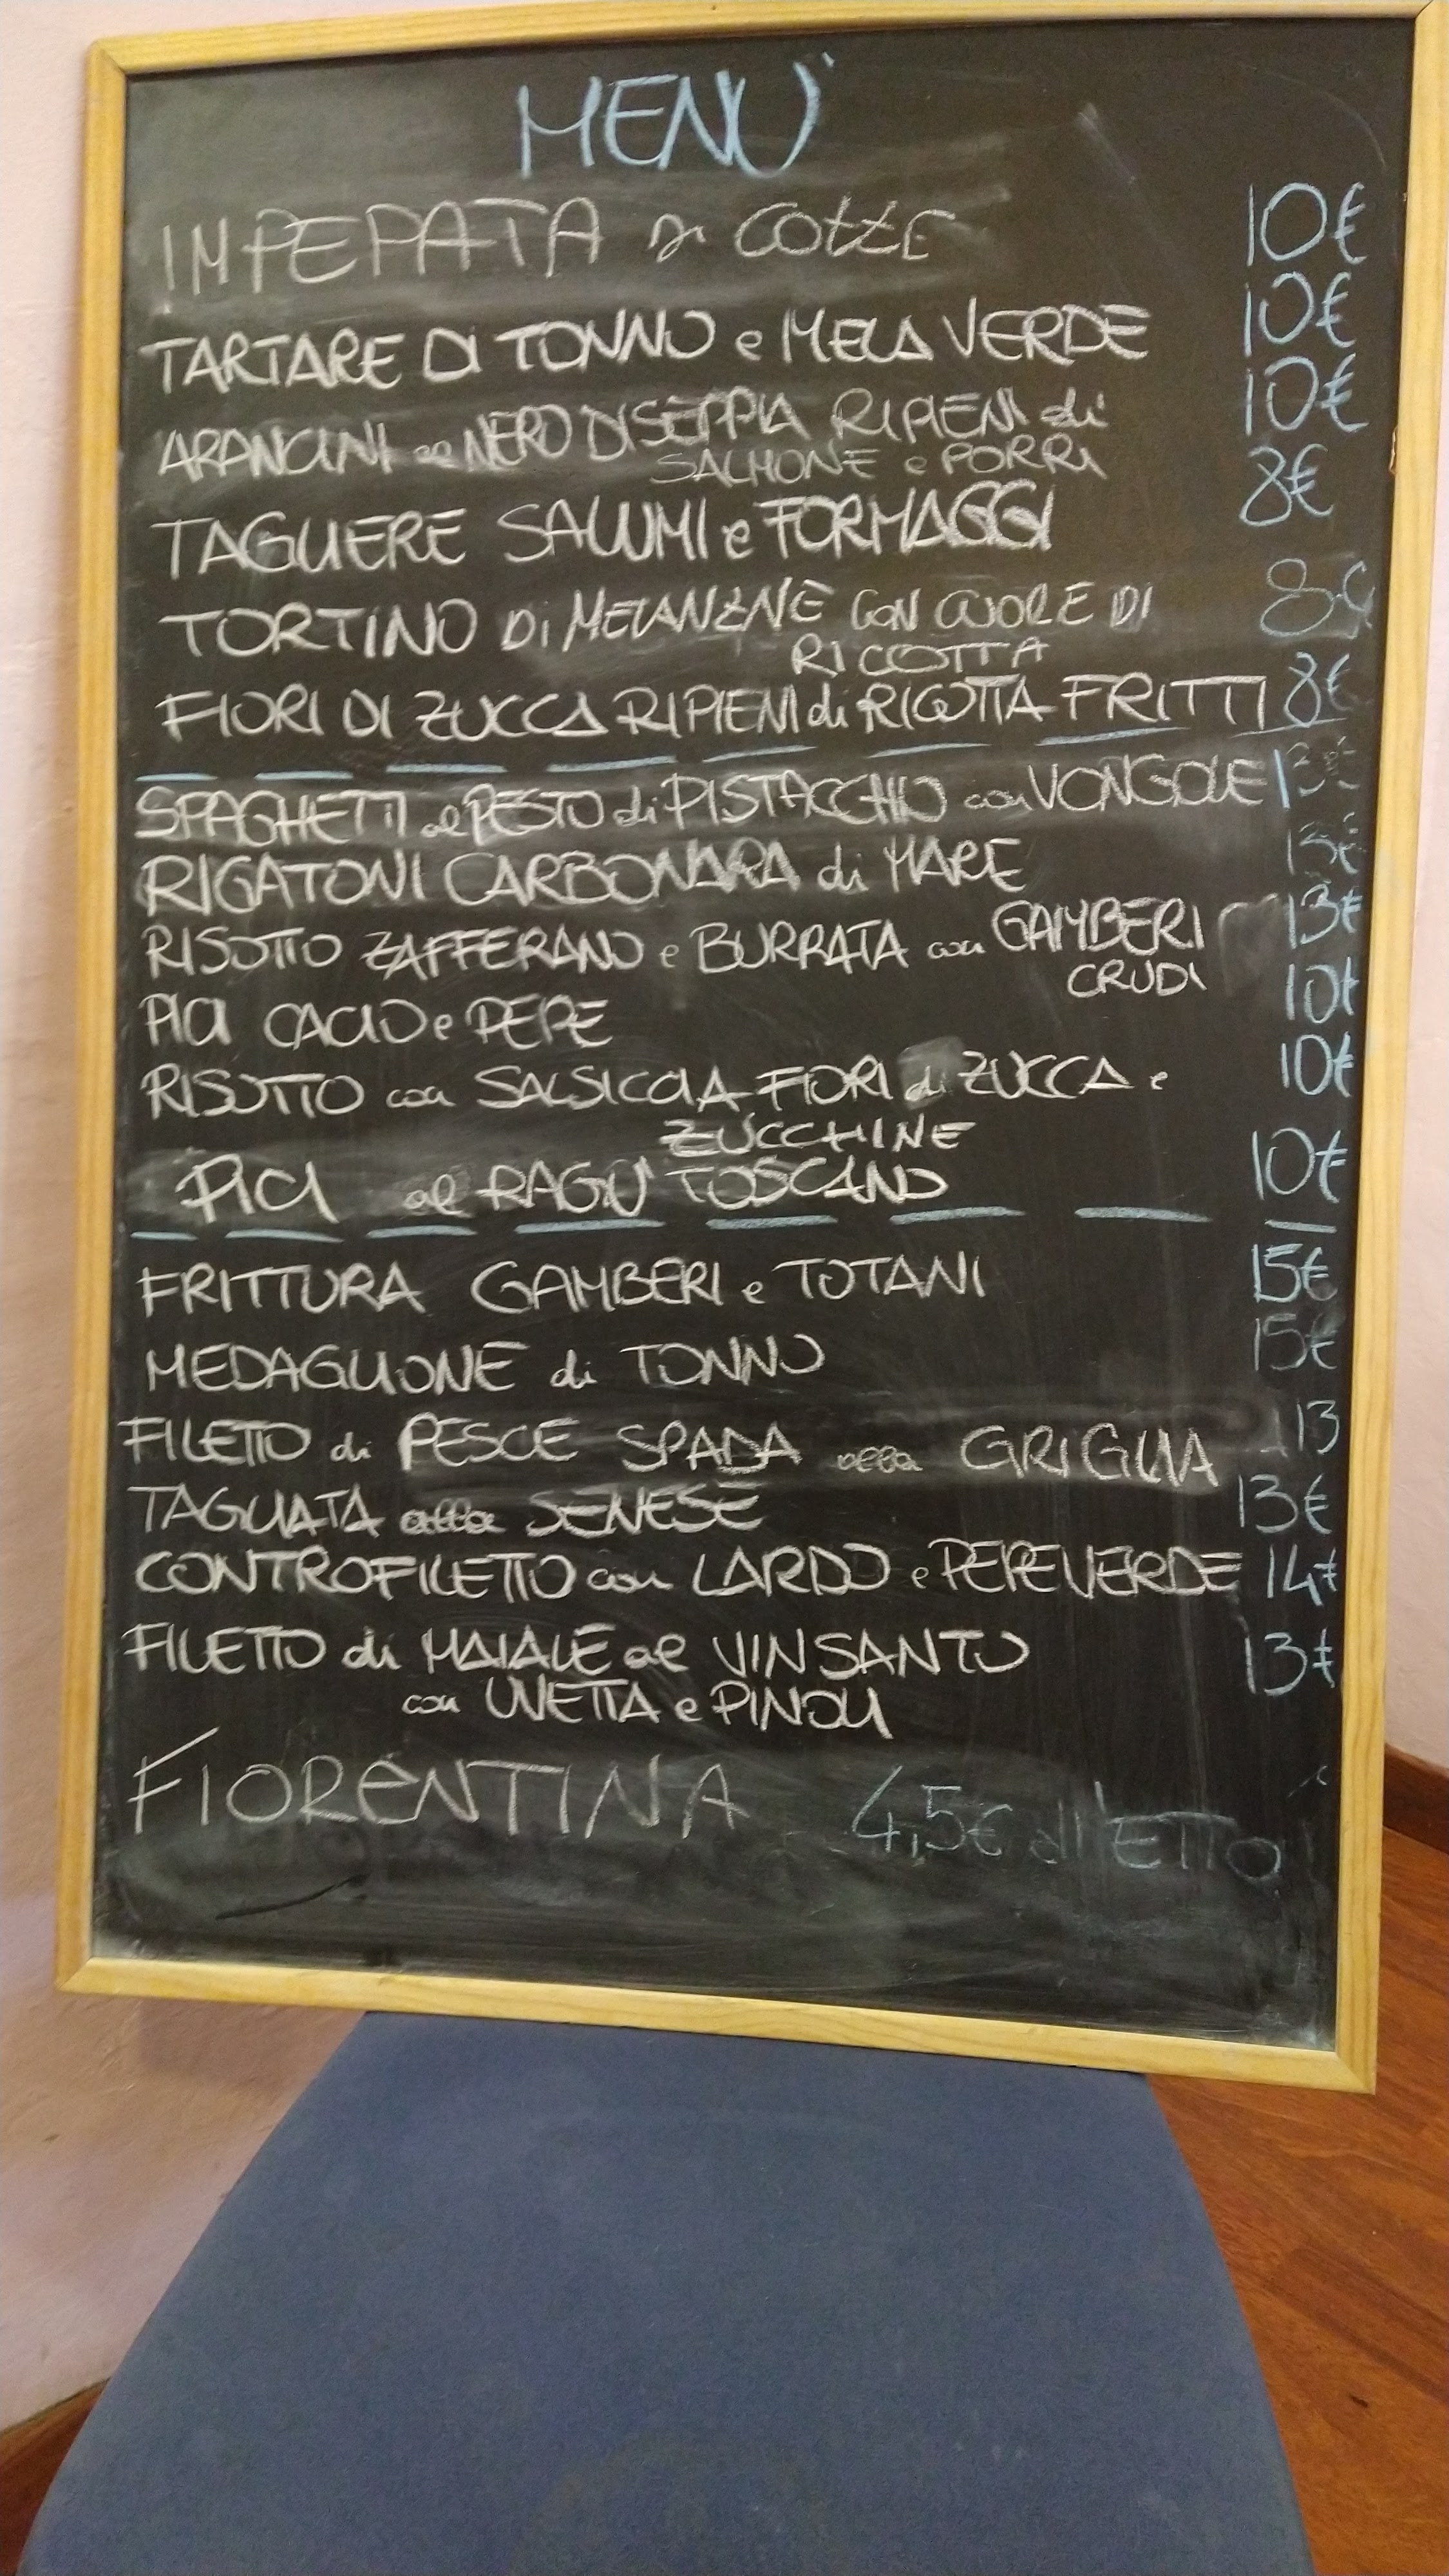 MENU'
IMPEPATA di COZZE 10€
TARTARE DI TONNO e MELA VERDE 10€
ARANCINI al NERO DI SEPPIA RIPIENI di 10€
SALMONE e PORRI
TAGLIERE SALUMI e FORMAGGI 8€
TORTINO Di MELANZANE CON CUORE DI 8€
RICOTTA
FIORI DI ZUCCA RIPIENI di RICOTTA FRITTI 8€
SPAGHETTI al PESTO di PISTACCHIO con VONGOLE 13€
RIGATONI CARBONARA di MARE 13€
RISOTTO ZAFFERANO e BURRATA con GAMBERI 13€
CRUDI
PICI CACIO e PEPE 10€
RISOTTO con SALSICCIA FIORI di ZUCCA e 10€
ZUCCHINE
PICI al RAGU' TOSCANO 10€
FRITTURA GAMBERI e TOTANI 15€
MEDAGLIONE di TONNO 15€
FILETTO di PESCE SPADA alla GRIGLIA 13
TAGLIATA alla SENESE 13€
CONTROFILETTO con LARDO e PEPE VERDE 14€
FILETTO di MAIALE al VINSANTO 13€
con UVETTA e PINOLI
FIORENTINA 4,5€ all'ETTO